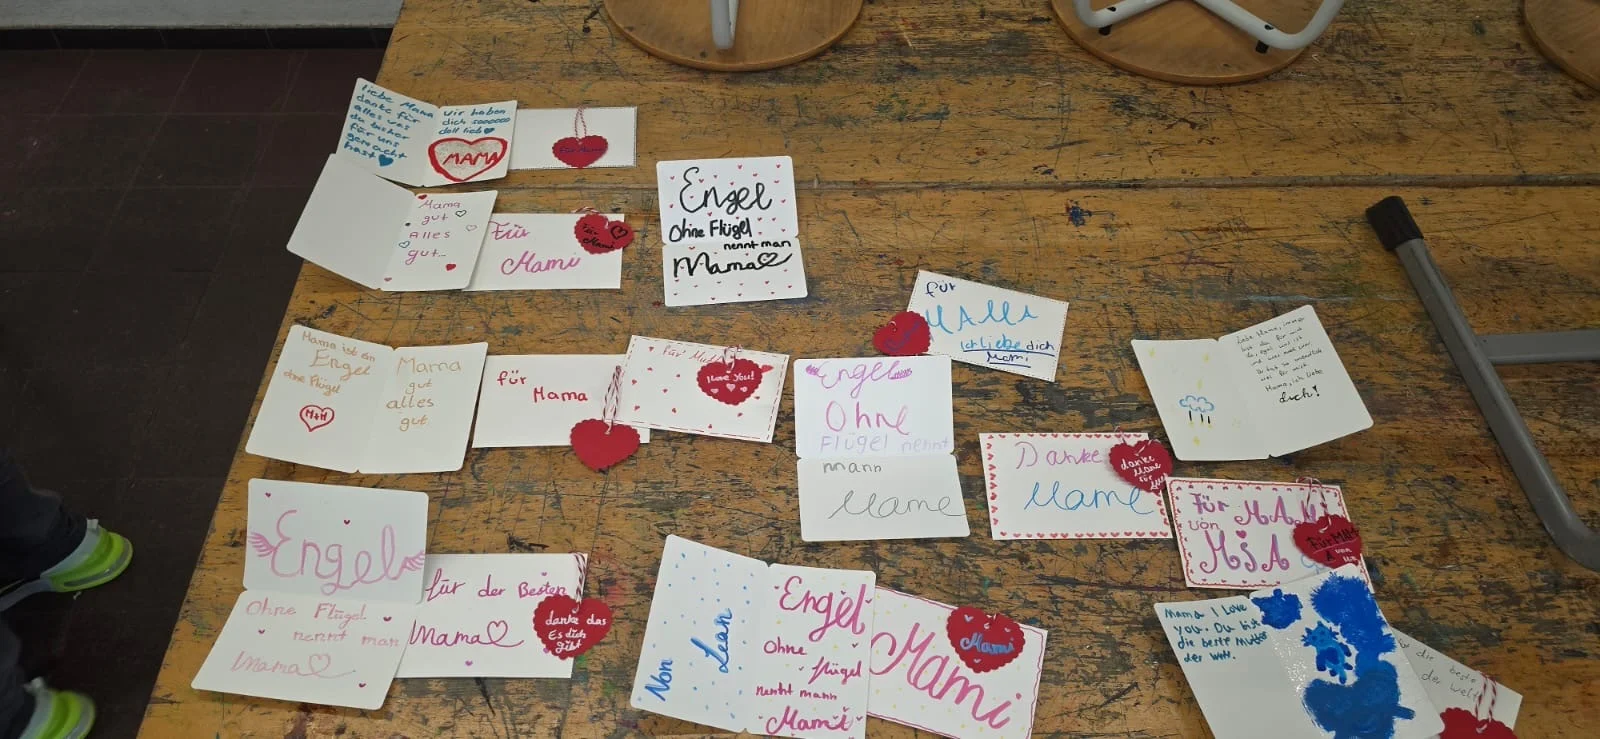 liebe Mama
danke für
alles was
du bisher
für uns
gemacht
hast
wir haben
dich soooooo
doll lieb
MAMA
für Mama
Mama
gut
Alles
gut...
Für
Mami
Für
Mami
Engel
Ohne Flügel
nennt man
Mama
für
MAMA
Ich liebe dich
Mami
Mama ist ein
Engel
ohne Flügel
M+M
Mama
gut
alles
gut
für
Mama
für
I love You!
Engel
Ohne
Flügel nennt
mann
Mame
Danke
Mame
danke
Mame
für
Liebe Mama, immer
bist du für mich
da, egal was ist
und was
Mama, ich liebe
dich!
Für MAMI
von
MIA
Für MAMI
von
Engel
Ohne Flügel
nennt man
Mama
für der Besten
Mama
danke das
Es dich
gibt
Von
Lean
Engel
Ohne
flügel
nennt mann
Mami
Mami
Mami
Mama I Love
you. Du bist
die beste Mutter
der Welt.
die beste
der welt